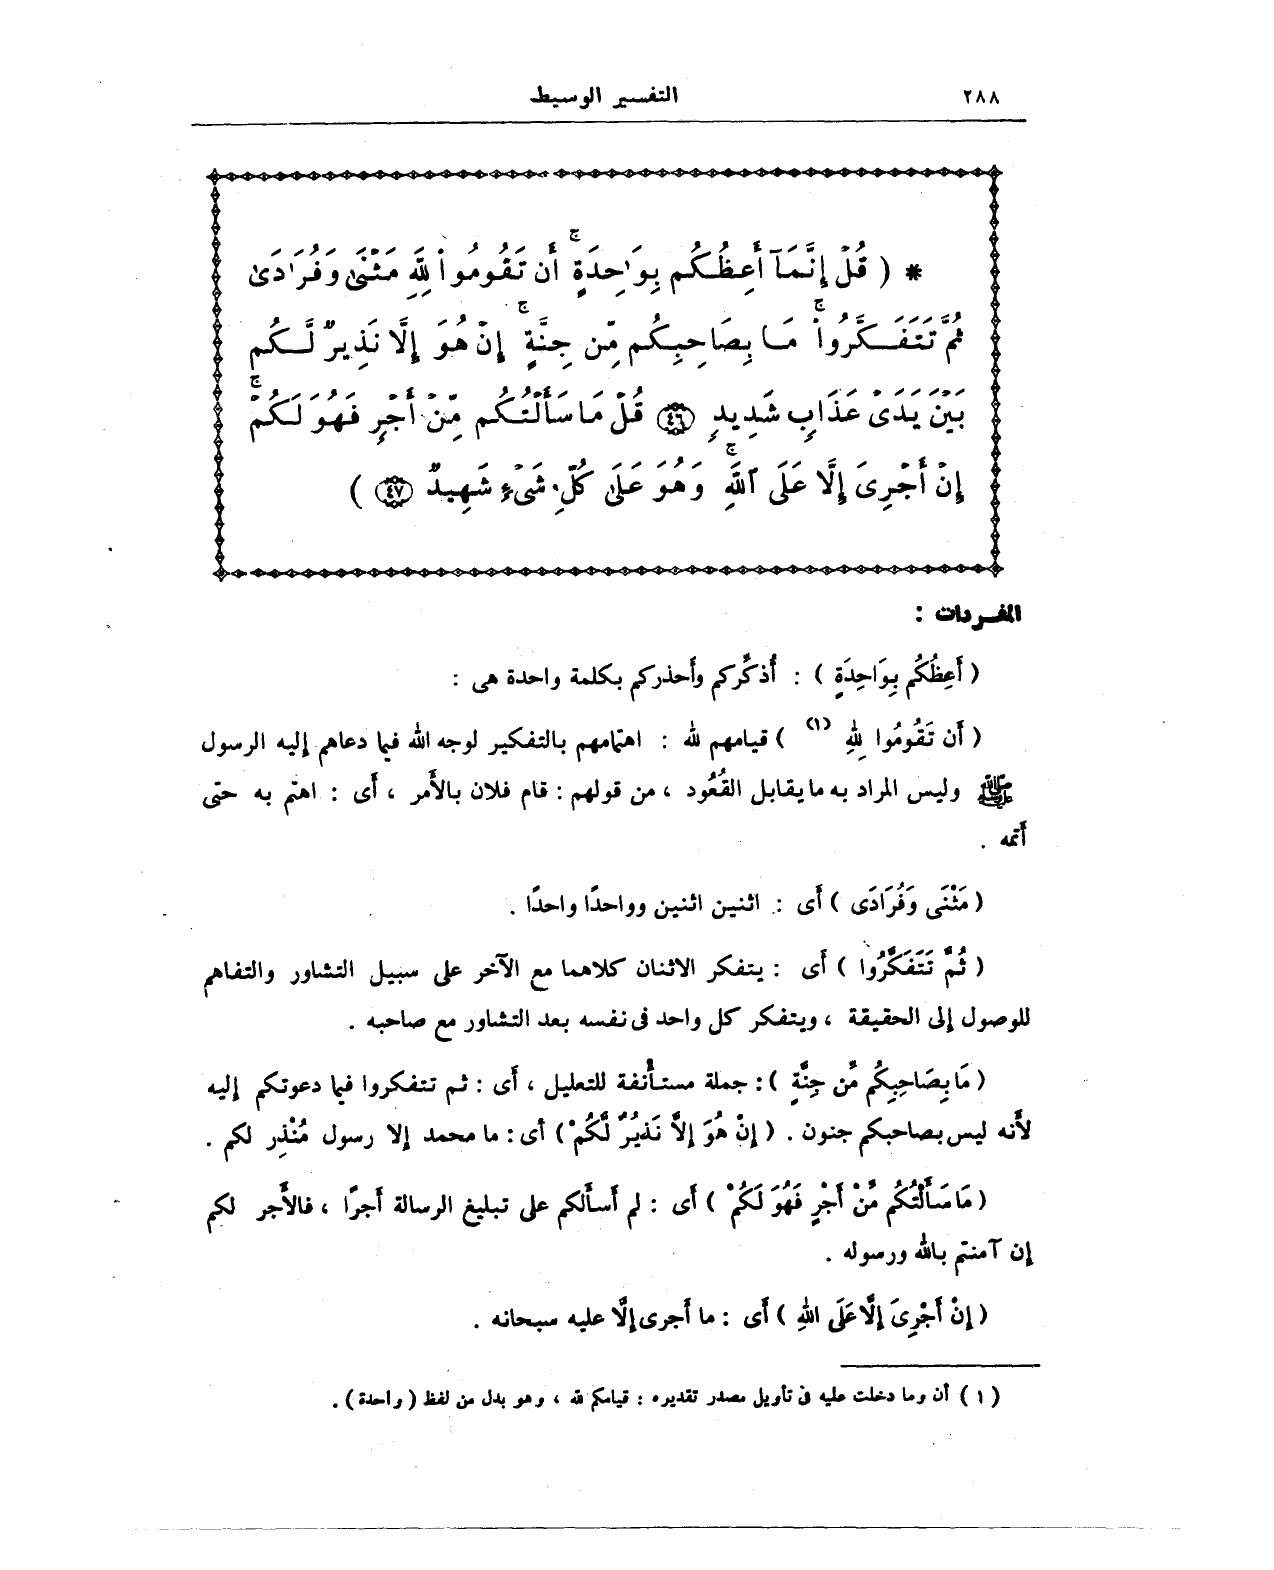 ٢٨٨
التفسير الوسيط
* ( قُلْ إِنَّمَآ أَعِظُكُم بِوَٰحِدَةٍ ۚ أَن تَقُومُوا۟ لِلَّهِ مَثْنَىٰ وَفُرَٰدَىٰ
ثُمَّ تَتَفَكَّرُوا۟ ۚ مَا بِصَاحِبِكُم مِّن جِنَّةٍ ۚ إِنْ هُوَ إِلَّا نَذِيرٌ لَّكُم
بَيْنَ يَدَىْ عَذَابٍ شَدِيدٍ ٤٦ قُلْ مَا سَأَلْتُكُم مِّنْ أَجْرٍ فَهُوَ لَكُمْ ۖ
إِنْ أَجْرِىَ إِلَّا عَلَى ٱللَّهِ ۖ وَهُوَ عَلَىٰ كُلِّ شَىْءٍ شَهِيدٌ ٤٧ )
المفردات :
( أَعِظُكُم بِوَاحِدَةٍ ) : أُذكِّركم وأحذركم بكلمة واحدة هى :
( أَن تَقُومُوا لِلهِ (١) ) قيامهم لله : اهتمامهم بالتفكير لوجه الله فيما دعاهم إليه الرسول
ﷺ وليس المراد به ما يقابل القُعُود ، من قولهم : قام فلان بالأَمر ، أَى : اهتم به حتى
أَتمه .
( مَثْنَى وَفُرَادَى ) أَى : اثنين اثنين وواحدًا واحدًا .
( ثُمَّ تَتَفَكَّرُوا ) أَى : يتفكر الاثنان كلاهما مع الآخر على سبيل التشاور والتفاهم
للوصول إلى الحقيقة ، ويتفكر كل واحد فى نفسه بعد التشاور مع صاحبه .
( مَا بِصَاحِبِكُم مِّن جِنَّةٍ ) : جملة مستأنفة للتعليل ، أَى : ثم تتفكروا فيما دعوتكم إليه
لأَنه ليس بصاحبكم جنون . ( إِنْ هُوَ إِلاَّ نَذِيرٌ لَّكُمْ ) أى : ما محمد إلا رسول مُنْذِر لكم .
( مَا سَأَلْتُكُم مِّنْ أَجْرٍ فَهُوَ لَكُمْ ) أَى : لم أَسأَلكم على تبليغ الرسالة أَجرًا ، فالأَجر لكم
إن آمنتم بالله ورسوله .
( إِنْ أَجْرِىَ إِلَّا عَلَى اللهِ ) أَى : ما أَجرى إلَّا عليه سبحانه .
( ١ ) أن وما دخلت عليه فى تأويل مصدر تقديره : قيامكم لله ، وهو بدل من لفظ ( واحدة ) .